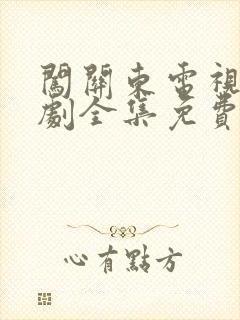 闖關東電視
劇全集免費
心有點方